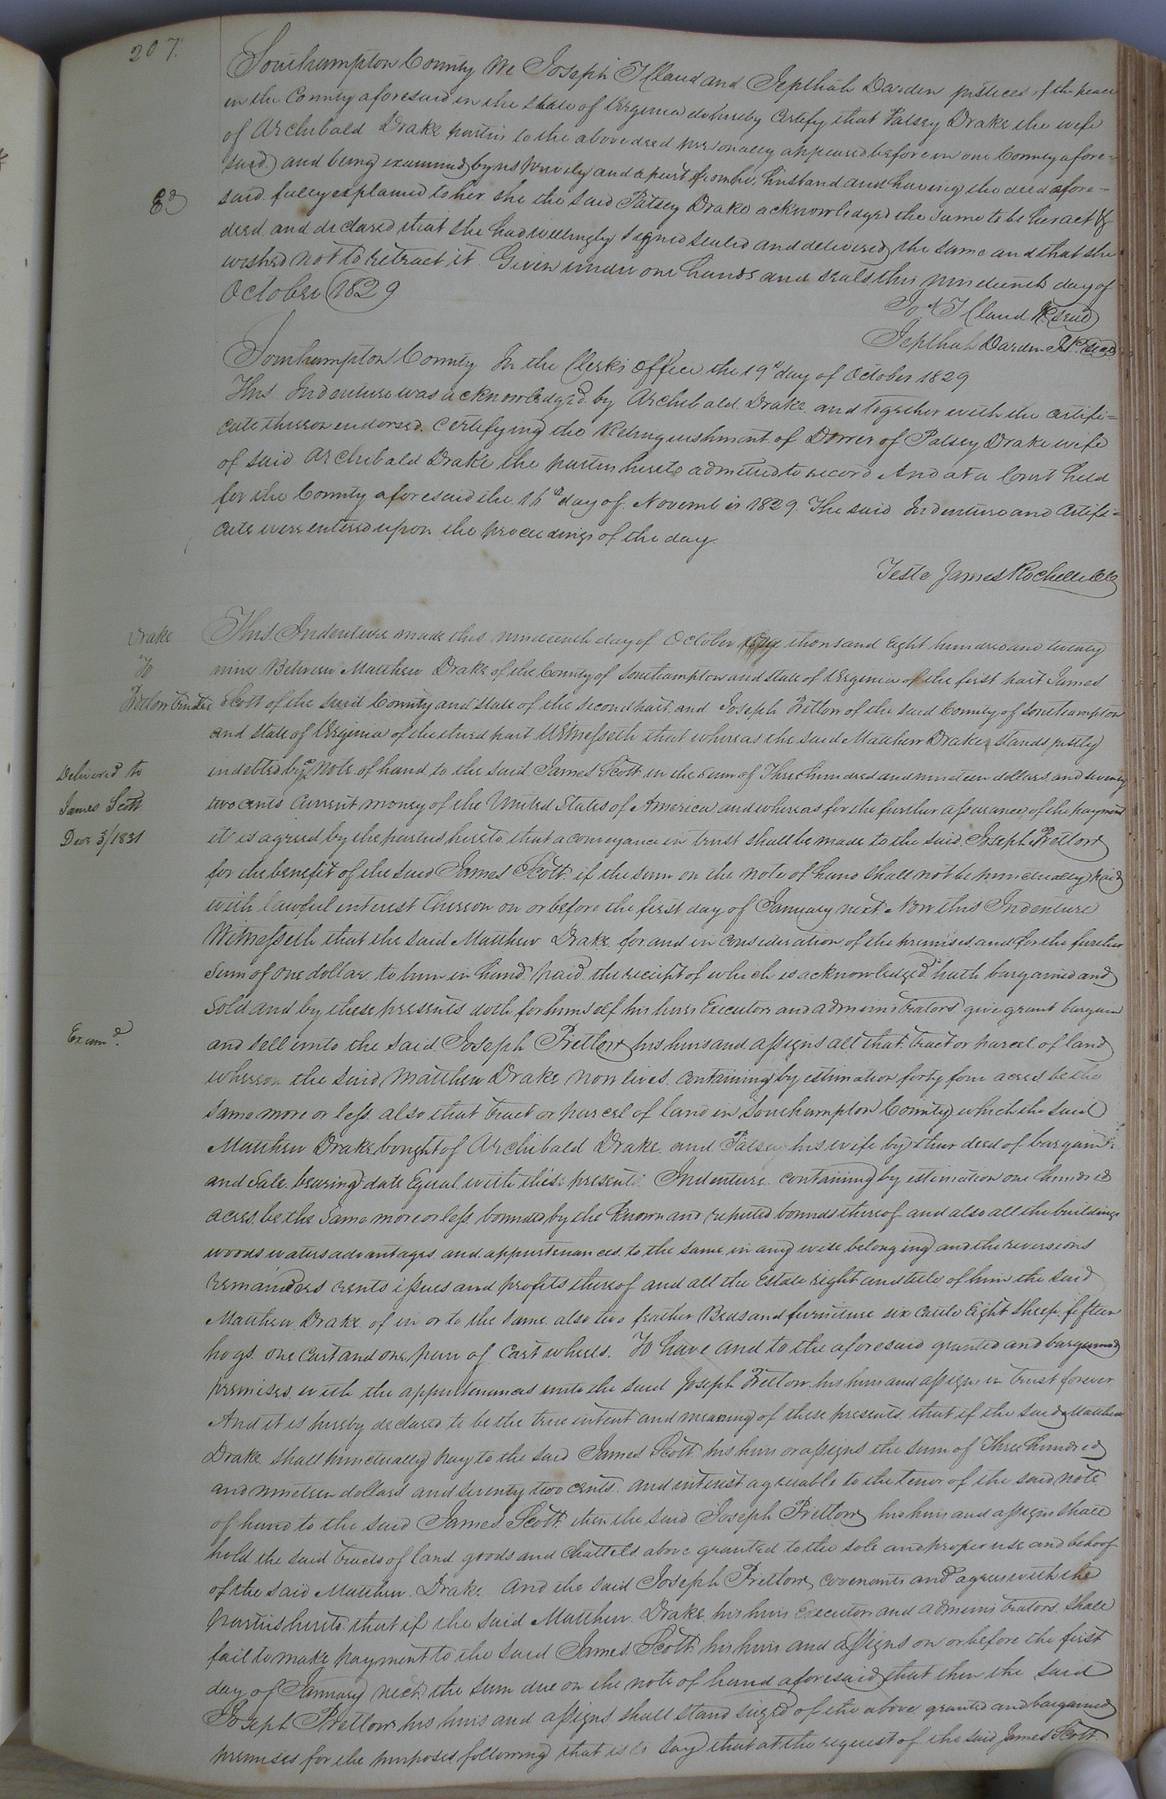 207.
Southampton County We Joseph T Claud and Jepthah Darden justices of the peace
in the County aforesaid in the State of Virginia do hereby Certify that Patsey Drake the wife
of Archibald Drake parties to the above deed personally appeared before us in our County afore=
said and being examined by us privily and apart from her husband and having the deed afore=
Ed
said fully explained to her she the said Patsey Drake acknowledged the same to be her act &
deed and declared that she had willingly signed sealed and delivered the same and that she
wished not to retract it. Given under our hands and seals this nineteenth day of
October 1829
Jos T Claud JP seal
Jepthah Darden JP seal
Southampton County In the Clerks Office the 19th day of October 1829
This Indenture was acknowledged by Archibald Drake and together with the certifi=
cate thereon endorsed Certifying the Relinquishment of Dower of Patsey Drake wife
of said Archibald Drake the parties hereto admitted to record And at a Court held
for the County aforesaid the 16th day of November 1829 The said Indenture and Certifi=
cate were entered upon the proceedings of the day.
Teste James Rochelle CC
Drake
To
Pretlow Trustee
This Indenture made this nineteenth day of October one thousand Eight hundred and twenty
nine Between Matthew Drake of the County of Southampton and state of Virginia of the first part James
Scott of the said County and state of the second part and Joseph Pretlow of the said County of Southampton
and state of Virginia of the third part Witnesseth that whereas the said Matthew Drake stands justly
Delivered to
James Scott
Decr 3/1831
indebted by note of hand to the said James Scott in the sum of Three hundred and nineteen dollars and seventy
two cents Current money of the United States of America and whereas for the further assurance of the payment
it is agreed by the parties hereto that a conveyance in trust shall be made to the said Joseph Pretlow
for the benefit of the said James Scott if the sum on the note of hand shall not be punctually paid
with lawful interest thereon on or before the first day of January next Now this Indenture
Witnesseth that the said Matthew Drake for and in consideration of the premises and for the further
sum of one dollar to him in hand paid the receipt of which is acknowledged hath bargained and
Sold and by these presents doth for himself his heirs Executors and administrators give grant bargain
Examd.
and sell unto the said Joseph Pretlow his heirs and assigns all that tract or parcel of land
whereon the said Matthew Drake now lives containing by estimation forty four acres be the
same more or less also that tract or parcel of land in Southampton County which the said
Matthew Drake bought of Archibald Drake and Patsey his wife by their deed of bargain
and sale bearing date Equal with this present Indenture containing by estimation one hundred
acres be the same more or less bounded by the known and reputed bounds thereof and also all the buildings
woods waters advantages and appurtenances to the same in any wise belonging and the reversions
remainders rents issues and profits thereof and all the Estate right and title of him the said
Matthew Drake of in or to the same also two feather Beds and furniture six cattle Eight sheep fifteen
hogs one Cart and one pair of Cart wheels. To have and to the aforesaid granted and bargained
premises with the appurtenances unto the said Joseph Pretlow his heirs and assigns in trust forever
And it is hereby declared to be the true intent and meaning of these presents that if the said Matthew
Drake shall punctually pay to the said James Scott his heirs or assigns the sum of Three hundred
and nineteen dollars and seventy two cents and interest agreeable to the tenor of the said note
of hand to the said James Scott then the said Joseph Pretlow his heirs and assigns shall
hold the said tracts of land goods and Chattels above granted to the sole and proper use and behoof
of the said Matthew Drake And the said Joseph Pretlow covenants and agrees with the
parties hereto that if the said Matthew Drake his heirs Executors and administrators shall
fail to make payment to the said James Scott his heirs and assigns on or before the first
day of January next the sum due on the note of hand aforesaid that then the said
Joseph Pretlow his heirs and assigns shall stand seized of the above granted and bargained
premises for the purposes following that is to say that at the request of the said James Scott